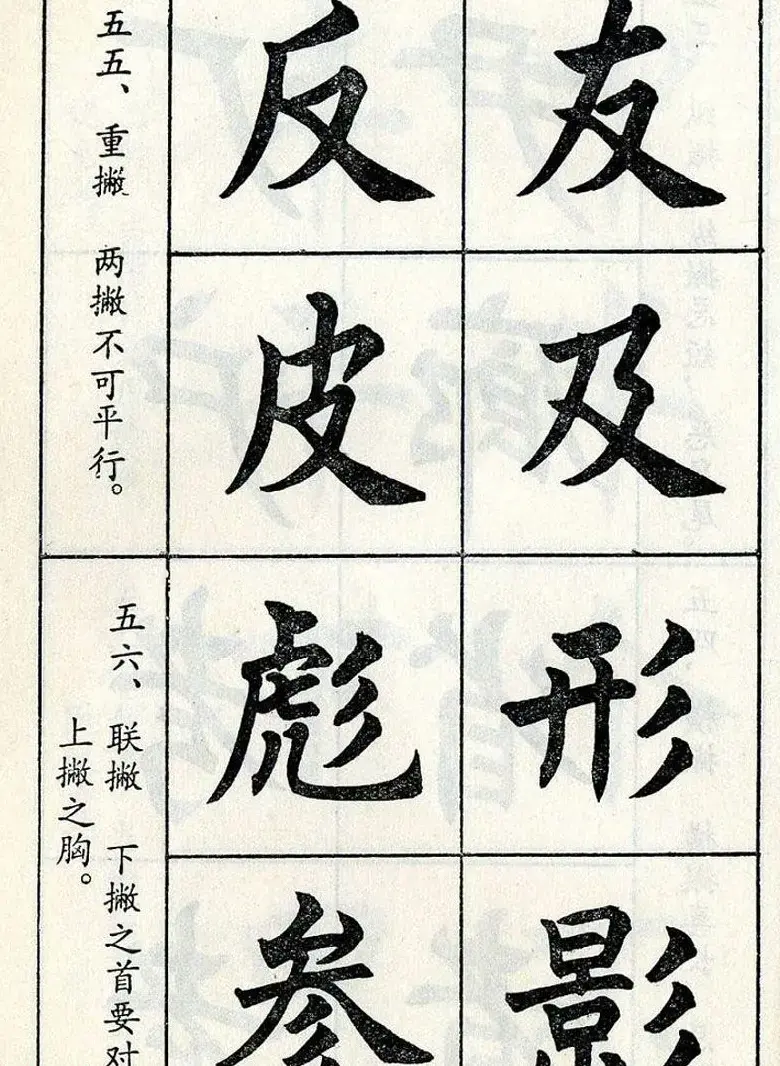 友
反
及
皮
五五、重撇 两撇不可平行。
形
彪
影
参
五六、联撇 下撇之首要对
上撇之胸。